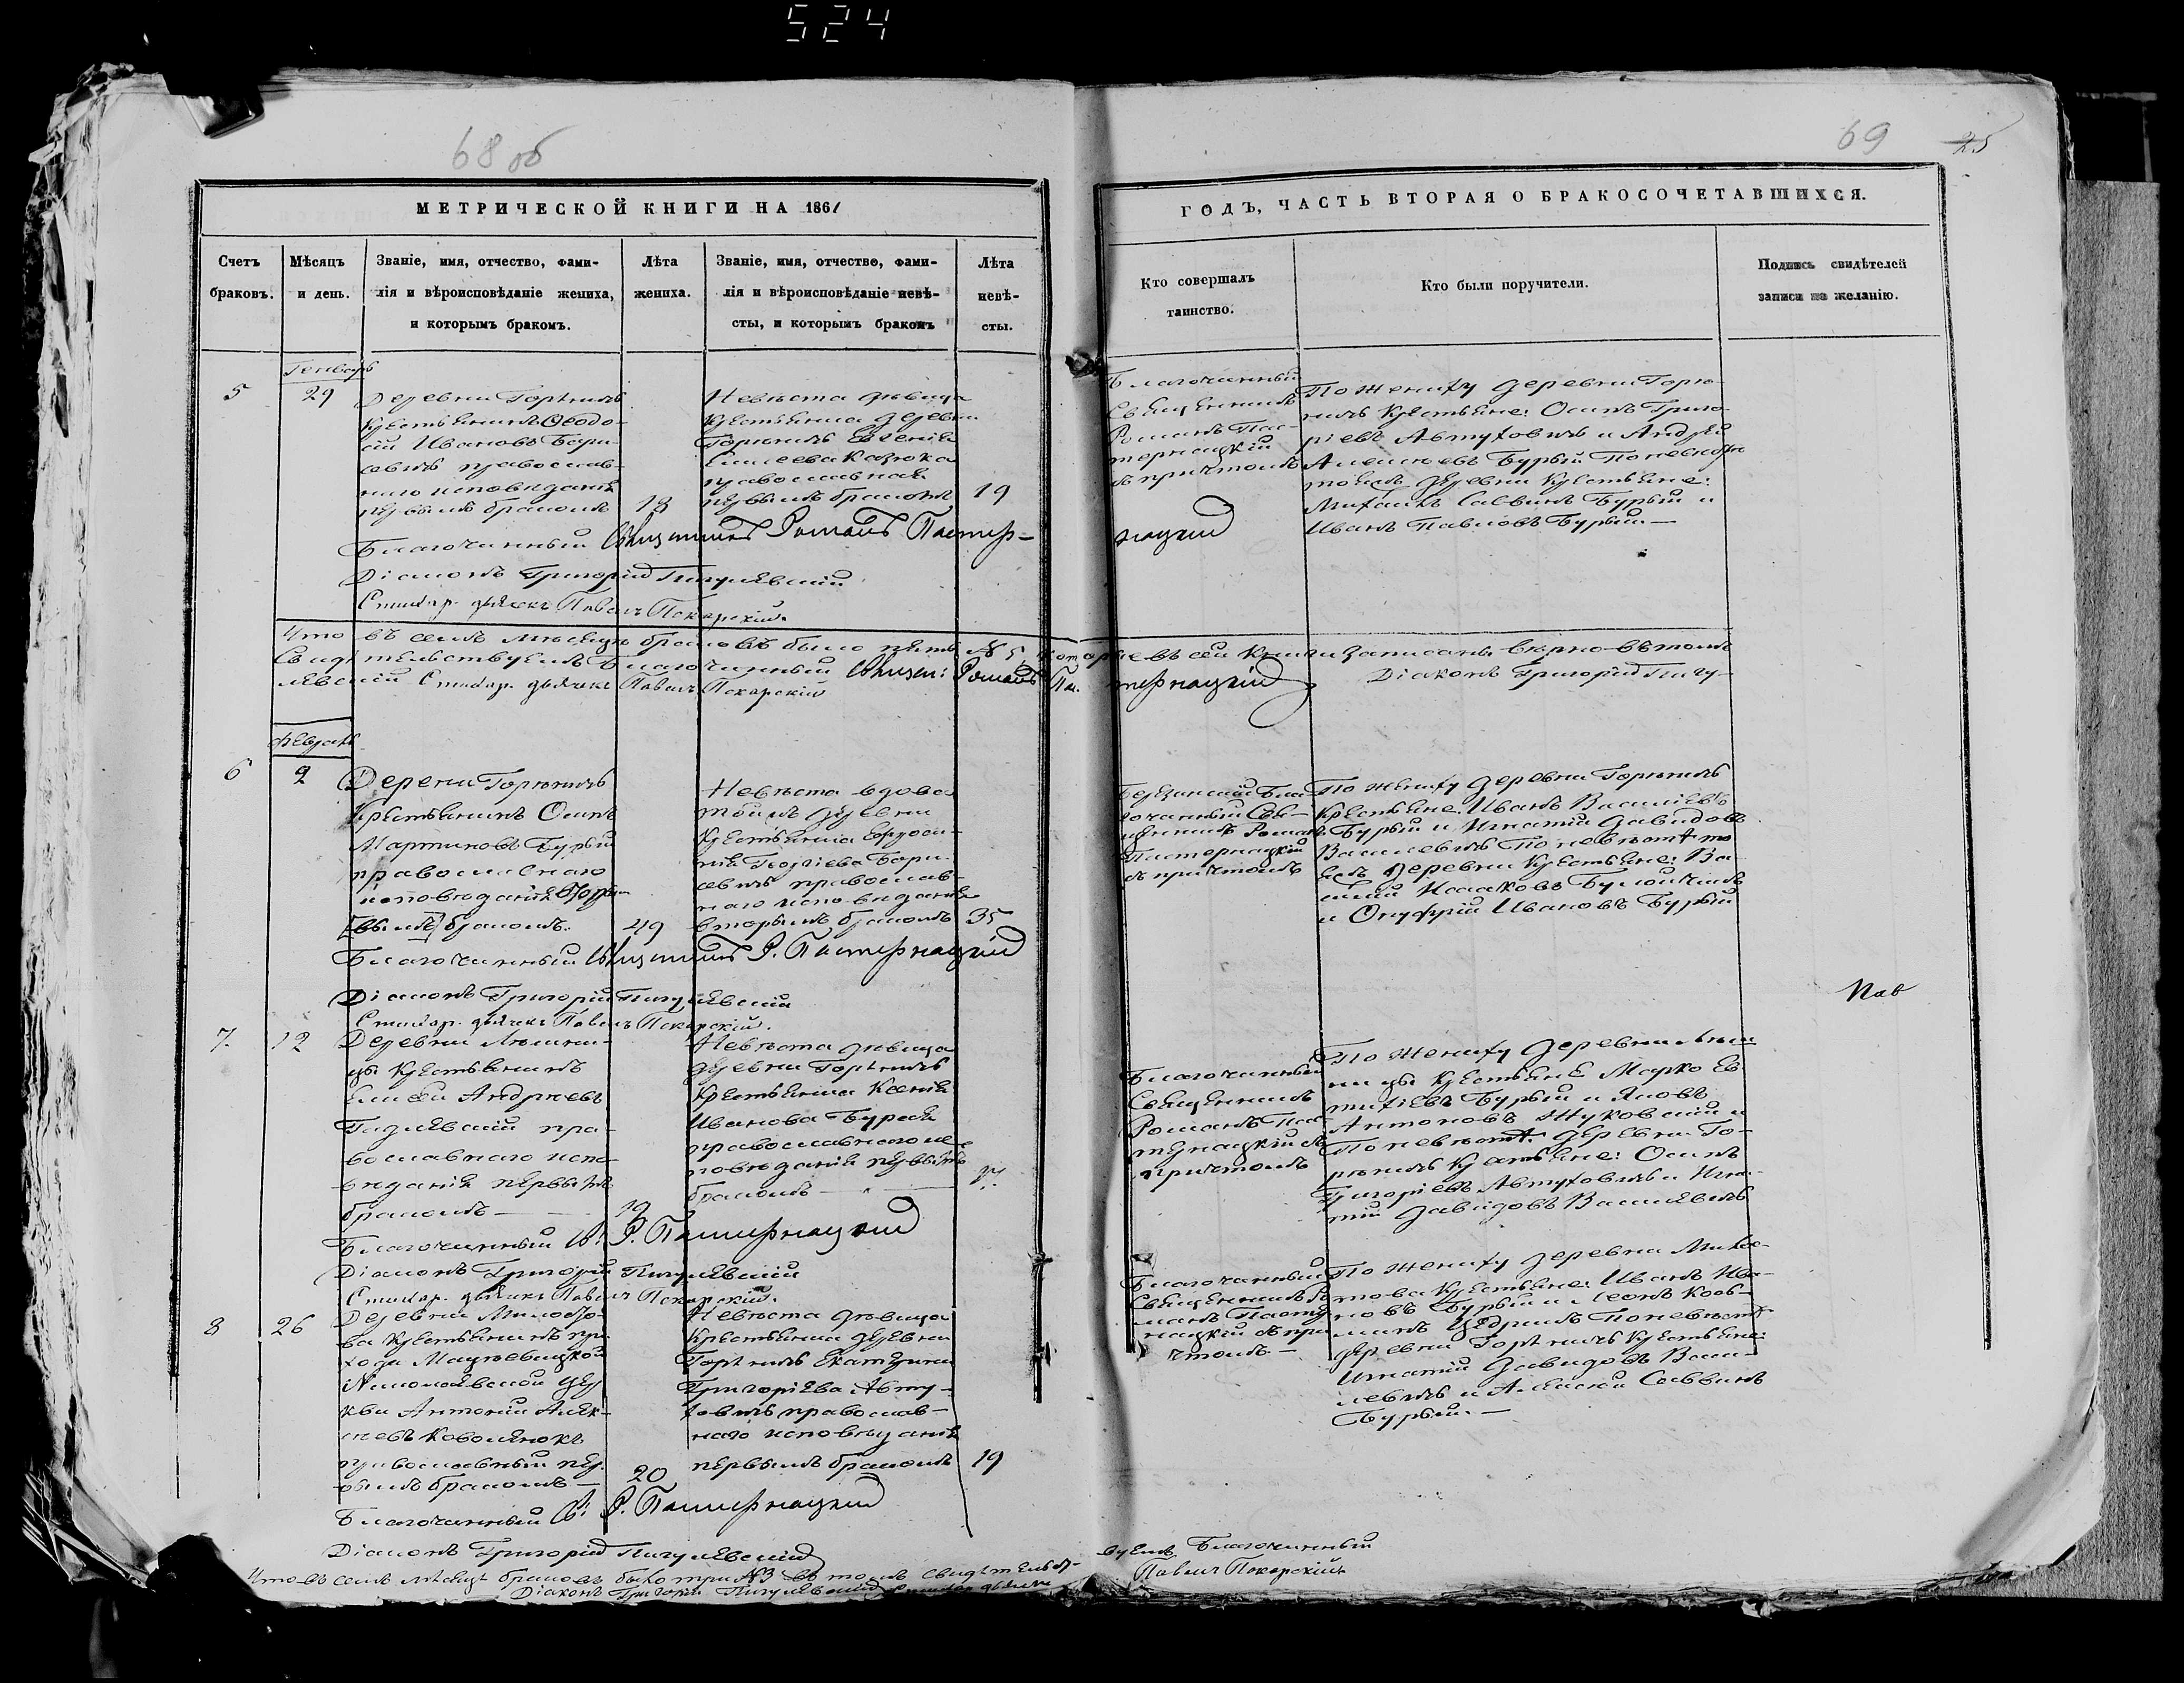 524
68 об
69
25
МЕТРИЧЕСКОЙ КНИГИ НА 1861
ГОДЪ, ЧАСТЬ ВТОРАЯ О БРАКОСОЧЕТАВШИХСЯ.
Счетъ браковъ.
Мѣсяцъ и день.
Званіе, имя, отчество, фами-
лія и вѣроисповѣданіе жениха,
и которымъ бракомъ.
Лѣта жениха.
Званіе, имя, отчество, фами-
лія и вѣроисповѣданіе невѣ-
сты, и которымъ бракомъ
Лѣта невѣ-
сты.
Кто совершалъ
таинство.
Кто были поручители.
Подпись свидѣтелей
записи по желанію.
Генварь
5
29
Деревни Горѣничъ
Крестьянинъ Ѳеодо-
сій Ивановъ Бори-
севичъ православ-
наго исповѣданія
первымъ бракомъ
18
Невѣста дѣвица
Крестьянка деревни
Горѣничъ Евгенія
Елисеева
православная
первымъ бракомъ
19
Благочинный
Священникъ
Романъ Пас-
тернацкій
съ причтомъ
По жениху деревни Горѣ-
ничъ Крестьяне: Осипъ Григо-
ріевъ Автуховичъ и Андрей
Алексѣевъ Бурый По невѣстѣ
той же деревни Крестьяне:
Михаилъ Саввинъ Бурый и
Иванъ Павловъ Бурый —
Благочинный Священникъ Романъ Пастер-
нацкій
Діаконъ Григорій Пигулевскій
Стихар. дьячекъ Павелъ Пекарскій.
Что въ семъ мѣсяцѣ браковъ было пять № 5 которые въ сей книги записаны вѣрно въ томъ
Свидѣтельствуемъ Благочинный Священ: Романъ Пас-
тернацкій Діаконъ Григорій Пигу-
левскій Стихар. дьячекъ Павелъ Пекарскій
Февраль
6
2
Деревни Горѣничъ
Крестьянинъ Осипъ
Мартиновъ Бурый
православнаго
исповѣданія
бракомъ.
49
Невѣста вдова
той же деревни
Крестьянка Ефроси-
нія Бори-
севичъ православ-
наго исповѣданія
вторымъ бракомъ
35
Березинскій Бла-
гочинный Свя-
щенникъ Романъ
Пастернацкій
съ причтомъ
По жениху деревни Горѣничъ
Крестьяне: Иванъ Василіевъ
Бурый и Игнатій Давидовъ
Василевичъ По невѣстѣ той
же деревни Крестьяне: Ва-
силій Исааковъ
и Онуфрій Ивановъ Бурый
Благочинный Священникъ Р. Пастернацкій
Діаконъ Григорій Пигулевскій
Стихар. дьячекъ Павелъ Пекарскій.
7.
12
Крестьянинъ
Елисей Андреевъ
пра-
вославнаго испо-
вѣданія первымъ
бракомъ —
19
Невѣста дѣвица
деревни Горѣничъ
Крестьянка Ксенія
Иванова Бурая
православнаго ис-
повѣданія первымъ
бракомъ —
Благочинный
Священникъ
Романъ Пас-
тернацкій съ
причтомъ
По жениху деревни
Крестьяне Марко Ев-
тихіевъ Бурый и Яковъ
Антоновъ Жуковскій и
По невѣстѣ деревни Го-
рѣничъ Крестьяне: Осипъ
Григоріевъ Автуховичъ и Игна-
тій Давидовъ Василевичъ
Благочинный Св: Р. Пастернацкій
Діаконъ Григорій Пигулевскій
Стихар. дьячекъ Павелъ Пекарскій.
8
26
Деревни
Крестьянинъ при-
хода
Николаевской цер-
кви Антоній Алек-
сѣевъ
православный пер-
вымъ бракомъ —
20
Невѣста дѣвица
Крестьянка деревни
Горѣничъ Екатерина
Григоріева Авту-
ховичъ православ-
наго исповѣданія
первымъ бракомъ
19
Благочинный
Священникъ Ро-
манъ Пастер-
нацкій съ при-
чтомъ. —
По жениху деревни
Крестьяне: Иванъ Ива-
новъ Бурый и
По невѣстѣ
деревни Горѣничъ Крестьяне:
Игнатій Давидовъ Васи-
левичъ и Алексѣй Саввинъ
Бурый. —
Благочинный Св: Р. Пастернацкій
Діаконъ Григорій Пигулевскій
Что въ семъ мѣсяцѣ браковъ было три №3 въ томъ свидѣтельст-
вуемъ Благочинный
Діаконъ Григорій Пигулевскій Стихар. дьячекъ
Павелъ Пекарскій